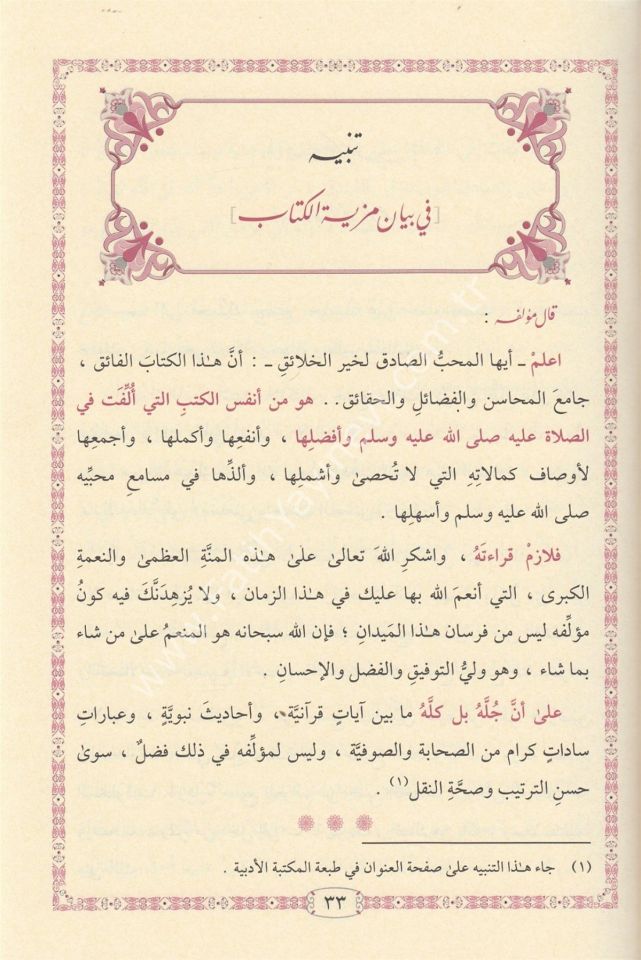 تنبيه
[في بيان مزية الكتاب]
قال مؤلفه :
اعلمْ ـ أيها المحبُّ الصادق لخير الخلائقِ ـ : أنَّ هـٰذا الكتابَ الفائق ،
جامعَ المحاسن والفضائلِ والحقائق .. هو من أنفس الكتبِ التي أُلِّفَت في
الصلاة عليه صلى الله عليه وسلم وأفضلِها ، وأنفعِها وأكملها ، وأجمعِها
لأوصاف كمالاتِهِ التي لا تُحصىٰ وأشملِها ، وألذِّها في مسامعِ محبِّيه
صلى الله عليه وسلم وأسهلِها .
فلازمْ قراءتَهُ ، واشكرِ اللهَ تعالىٰ علىٰ هـٰذه المنَّةِ العظمىٰ والنعمةِ
الكبرى ، التي أنعمَ الله بها عليك في هـٰذا الزمان ، ولا يُزهِدَنَّكَ فيه كونُ
مؤلِّفه ليس من فرسان هـٰذا المَيدانِ ؛ فإن الله سبحانه هو المنعمُ علىٰ من شاء
بما شاء ، وهو وليُّ التوفيقِ والفضل والإحسانِ .
علىٰ أنَّ جُلَّهُ بل كلَّهُ ما بين آياتٍ قرآنيَّة ، وأحاديثَ نبويَّةٍ ، وعباراتِ
ساداتٍ كرام من الصحابة والصوفيَّة ، وليس لمؤلِّفه في ذلك فضلٌ ، سوىٰ
حسنِ الترتيب وصحَّةِ النقل(١) .
(١) جاء هـٰذا التنبيه علىٰ صفحة العنوان في طبعة المكتبة الأدبية .
٣٣